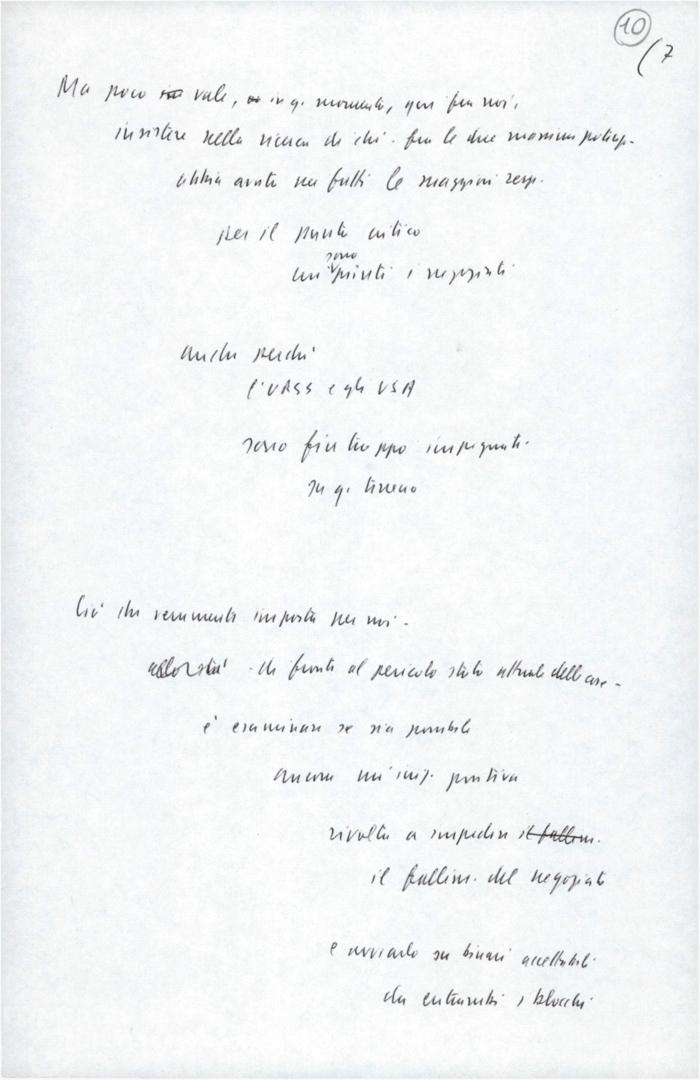 10
(7
Ma poco vale, in q. momento, qui fra noi,
insistere nella ricerca di chi - fra le due massime potenze -
abbia avuto nei fatti le maggiori resp.
per il punto critico
cui sono giunti i negoziati
anche perché
l'URSS e gli USA
sono fin troppo impegnati
su q. terreno
Ciò che veramente importa per noi -
- di fronte al pericolo stato attuale delle cose -
è esaminare se sia possibile
ancora un'iniz. positiva
rivolta a impedire il fallim.
il fallim. del negoziato
e avviarlo su binari accettabili
da entrambi i blocchi